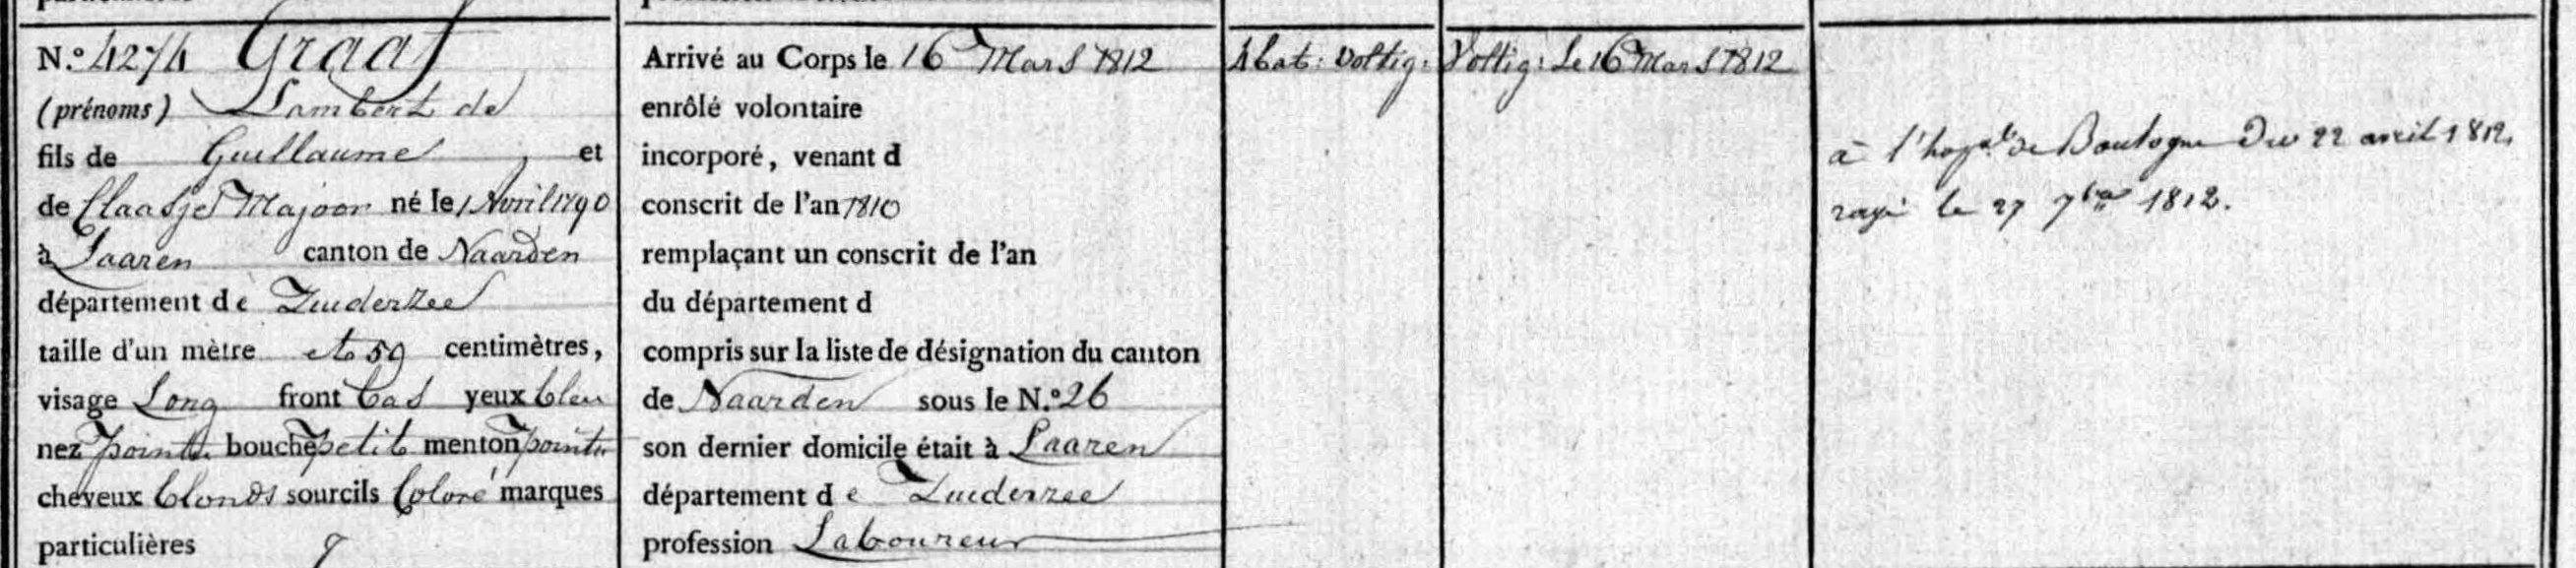 N.º 4274 Graaf
(prénoms) Lambert de
fils de Guillaume et
de Claasje Majoor né le 1 Avril 1790
à Laaren canton de Naarden
département de Zuiderzee
taille d'un mètre et 59 centimètres,
visage Long front bas yeux bleu
nez pointu bouche petit menton pointu
cheveux blonds sourcils Coloré marques
particulières
Arrivé au Corps le 16 Mars 1812
enrôlé volontaire
incorporé, venant d
conscrit de l'an 1810
remplaçant un conscrit de l'an
du département d
compris sur la liste de désignation du canton
de Naarden sous le N.º 26
son dernier domicile était à Laaren
département de Zuiderzee
profession Laboureur
4 bat: Voltig:
Voltig: Le 16 Mars 1812
à l'hopal de Boulogne Du 22 avril 1812.
rayé le 27 7bre 1812.